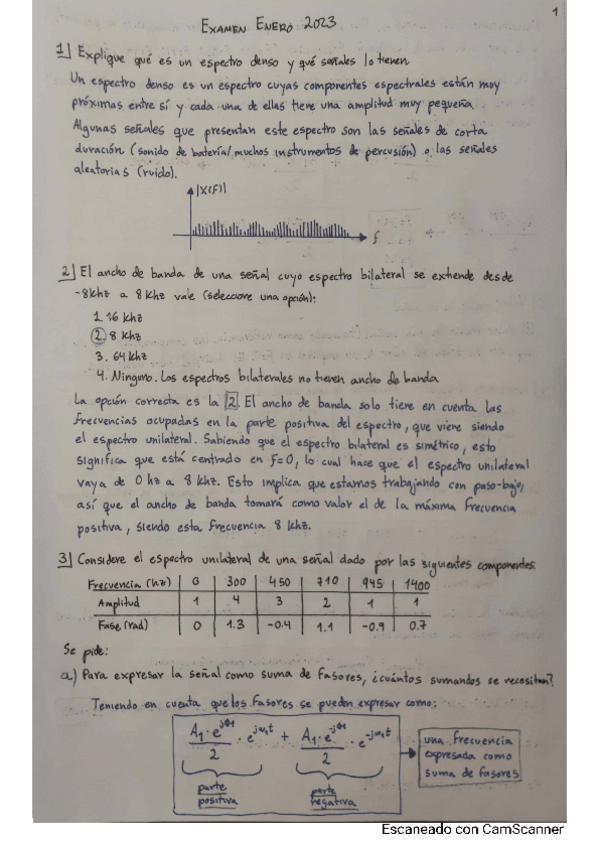 1
EXAMEN ENERO 2023
1] Explique qué es un espectro denso y qué señales lo tienen
Un espectro denso es un espectro cuyas componentes espectrales están muy
próximas entre sí y cada una de ellas tiene una amplitud muy pequeña.
Algunas señales que presentan este espectro son las señales de corta
duración (sonido de batería/muchos instrumentos de percusión) o las señales
aleatorias (ruido).
|X(f)|
f
2] El ancho de banda de una señal cuyo espectro bilateral se extiende desde
-8khz a 8 khz vale (seleccione una opción):
1. 16 khz
2. 8 khz
3. 64 khz
4. Ninguno. Los espectros bilaterales no tienen ancho de banda
La opción correcta es la 2. El ancho de banda solo tiene en cuenta las
frecuencias ocupadas en la parte positiva del espectro, que viene siendo
el espectro unilateral. Sabiendo que el espectro bilateral es simétrico, esto
significa que está centrado en f=0, lo cual hace que el espectro unilateral
vaya de 0 hz a 8 khz. Esto implica que estamos trabajando con paso-bajo,
así que el ancho de banda tomará como valor el de la máxima frecuencia
positiva, siendo esta frecuencia 8 khz.
3] Considere el espectro unilateral de una señal dado por las siguientes componentes:
Frecuencia (hz) 0 300 450 710 945 1400
Amplitud 1 4 3 2 1 1
Fase (rad) 0 1.3 -0.4 1.1 -0.9 0.7
Se pide:
a) Para expresar la señal como suma de fasores, ¿cuántos sumandos se necesitan?
Teniendo en cuenta que los fasores se pueden expresar como:
A₁·e^jΦ₁/2 · e^jω₁t + A₁·e^-jΦ₁/2 · e^-jω₁t
parte positiva
parte negativa
una frecuencia
expresada como
suma de fasores
Escaneado con CamScanner